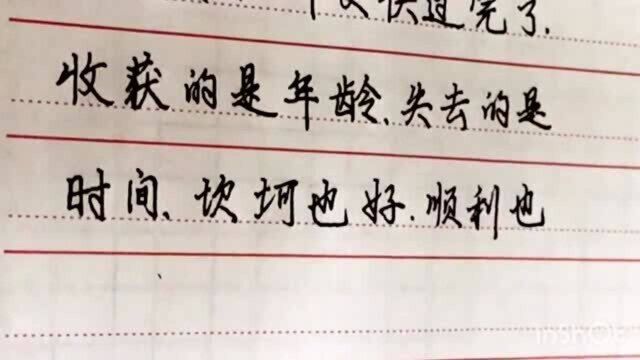 快过完了.
收获的是年龄.失去的是
时间、坎坷也好.顺利也